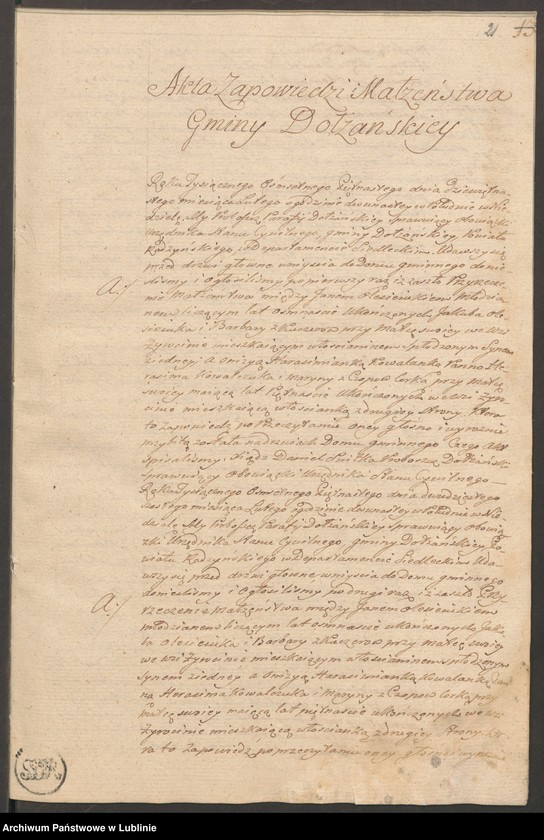 21 13
Akta Zapowiedzi Małżeństwa
Gminy Dołżańskiey
Roku Tysiącznego Ośmsetnego Piętnastego dnia Dziewiętna-
stego miesiąca Lutego o godzinie dwunastey w Południe w Nie-
dzielę. My Proboszcz Parafij Dołżańskiey Sprawuiący Obowiązki
Urzędnika Stanu Cywilnego, gminy Dołżańskiey Powiatu
Radzyńskiego, w Departamencie Siedleckim. Udawszy się
przed drzwi główne wniyścia do Domu gminnego donie-
śliśmy i Ogłosiliśmy po pierwszy raz, iż zaszło Przyrzecze-
A:/
nie Małżeństwa między Janem Olesieiukiem Młodzia-
nem liczącym lat ośmnaście ukończonych, Jakuba Ole-
sieiuka i Barbary z przy Matce swoiey we wsi
Żyrocinie mieszkaiącym włościaninem Spłodzonym Synem
z iedney; a Onizyą Harasimianką Kowalanką Panną Ha-
rasima Kowalczuka i Maryny z Corką przy Matce
swoiey maiącą lat Piętnaście ukończonych we wsi Żyro-
cinie mieszkaiącą włościanką z drugiey strony. Która
to zapowiedź po Przeczytaniu oney głośno i wyraźnie
przybitą została na drzwiach Domu gminnego. Czego Akt
spisaliśmy. Xiądz Daniel Proboszcz Dołżański
sprawuiący obowiązki Urzędnika Stanu Cywilnego.
Roku Tysiącznego Ośmsetnego Piętnastego dnia dwudziestego
szóstego miesiąca Lutego o godzinie dwunastey w Południe w Nie-
dzielę. My Proboszcz Parafij Dołżańskiey Sprawuiący obowią-
zki Urzędnika Stanu Cywilnego, gminy Dołżańskiey Po-
wiatu Radzyńskiego w Departamencie Siedleckim. Uda-
wszy się przed drzwi głowne wniyścia do Domu gminnego
donieśliśmy i Ogłosiliśmy po drugi raz, iż zaszło Przy-
A:/
rzeczenie Małżeństwa między Janem Olesieiukiem
młodzianem liczącym lat ośmnaście ukończonych, Jaku-
ba Olesieiuka i Barbary z przy matce swoiey
we wsi Żyrocinie mieszkaiącym włościaninem spłodzonym
Synem z iedney a Onizyą Harasimianką Kowalanką Pan-
ną Harasima Kowalczuka i Maryny z Corką przy
matce swoiey maiącą lat piętnaście ukończonych we wsi
Żyrocinie mieszkaiącą włościanką z drugiey strony. Któ-
ra to Zapowiedź po przeczytaniu oney głośno i wyraźnie
Archiwum Państwowe w Lublinie